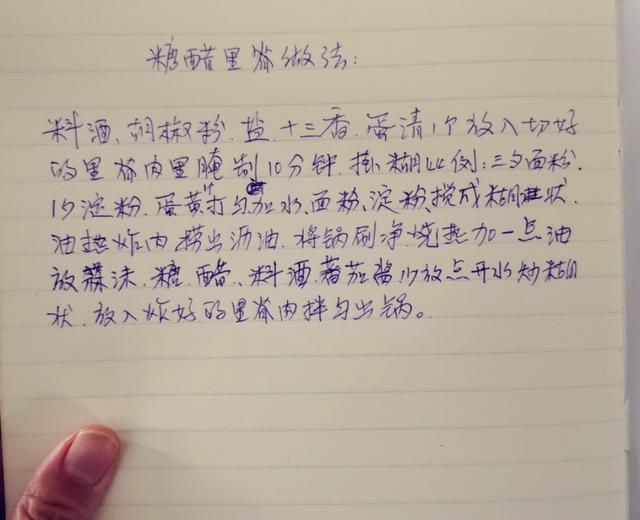 糖醋里脊做法:
料酒、胡椒粉.盐.十三香.蛋清1个放入切好
的里脊肉里腌制10分钟.挂糊比例:三勺面粉.
1勺淀粉.蛋黄1个打匀加水、面粉、淀粉、搅成糊状.
油热炸肉捞出沥油.将锅刷净烧热加一点油
放蒜沫.糖.醋、料酒.蕃茄酱,少放点开水炒粘稠
状.放入炸好的里脊肉拌匀出锅。